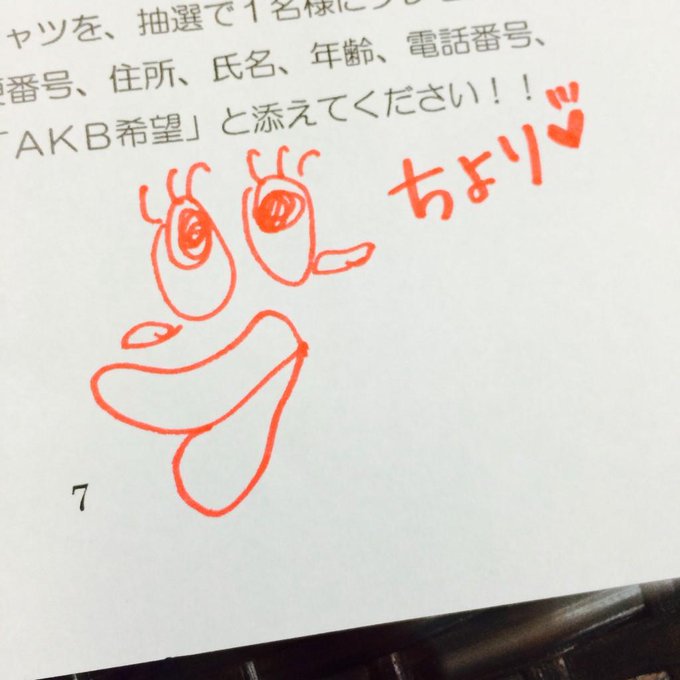 ャツを、抽選で１名様にプレゼ
番号、住所、氏名、年齢、電話番号、
「ＡＫＢ希望」と添えてください！！
ちより♥
7